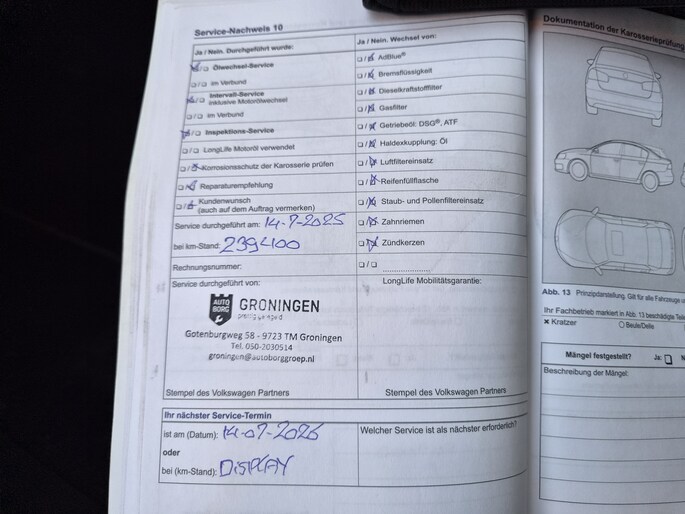 Service-Nachweis 10
Ja / Nein. Durchgeführt wurde:
Ölwechsel-Service
im Verbund
Intervall-Service
inklusive Motorölwechsel
im Verbund
Inspektions-Service
LongLife Motoröl verwendet
Korrosionsschutz der Karosserie prüfen
Reparaturempfehlung
Kundenwunsch
(auch auf dem Auftrag vermerken)
Service durchgeführt am: 14-7-2025
bei km-Stand: 239400
Rechnungsnummer:
Service durchgeführt von:
AUTO BORG GRONINGEN
Gotenburgweg 58 - 9723 TM Groningen
Tel. 050-2030514
groningen@autoborggroep.nl
Stempel des Volkswagen Partners
Ja / Nein. Wechsel von:
AdBlue®
Bremsflüssigkeit
Dieselkraftstofffilter
Gasfilter
Getriebeöl: DSG®, ATF
Haldexkupplung: Öl
Luftfiltereinsatz
Reifenfüllflasche
Staub- und Pollenfiltereinsatz
Zahnriemen
Zündkerzen
LongLife Mobilitätsgarantie:
Stempel des Volkswagen Partners
Ihr nächster Service-Termin
ist am (Datum): 14-07-2026
oder
bei (km-Stand): DISPLAY
Welcher Service ist als nächster erforderlich?
Dokumentation der Karosserieprüfung
Abb. 13 Prinzipdarstellung. Gilt für alle Fahrzeuge
Ihr Fachbetrieb markiert in Abb. 13 beschädigte Teile
× Kratzer ○ Beule/Delle
Mängel festgestellt? Ja:
Beschreibung der Mängel: